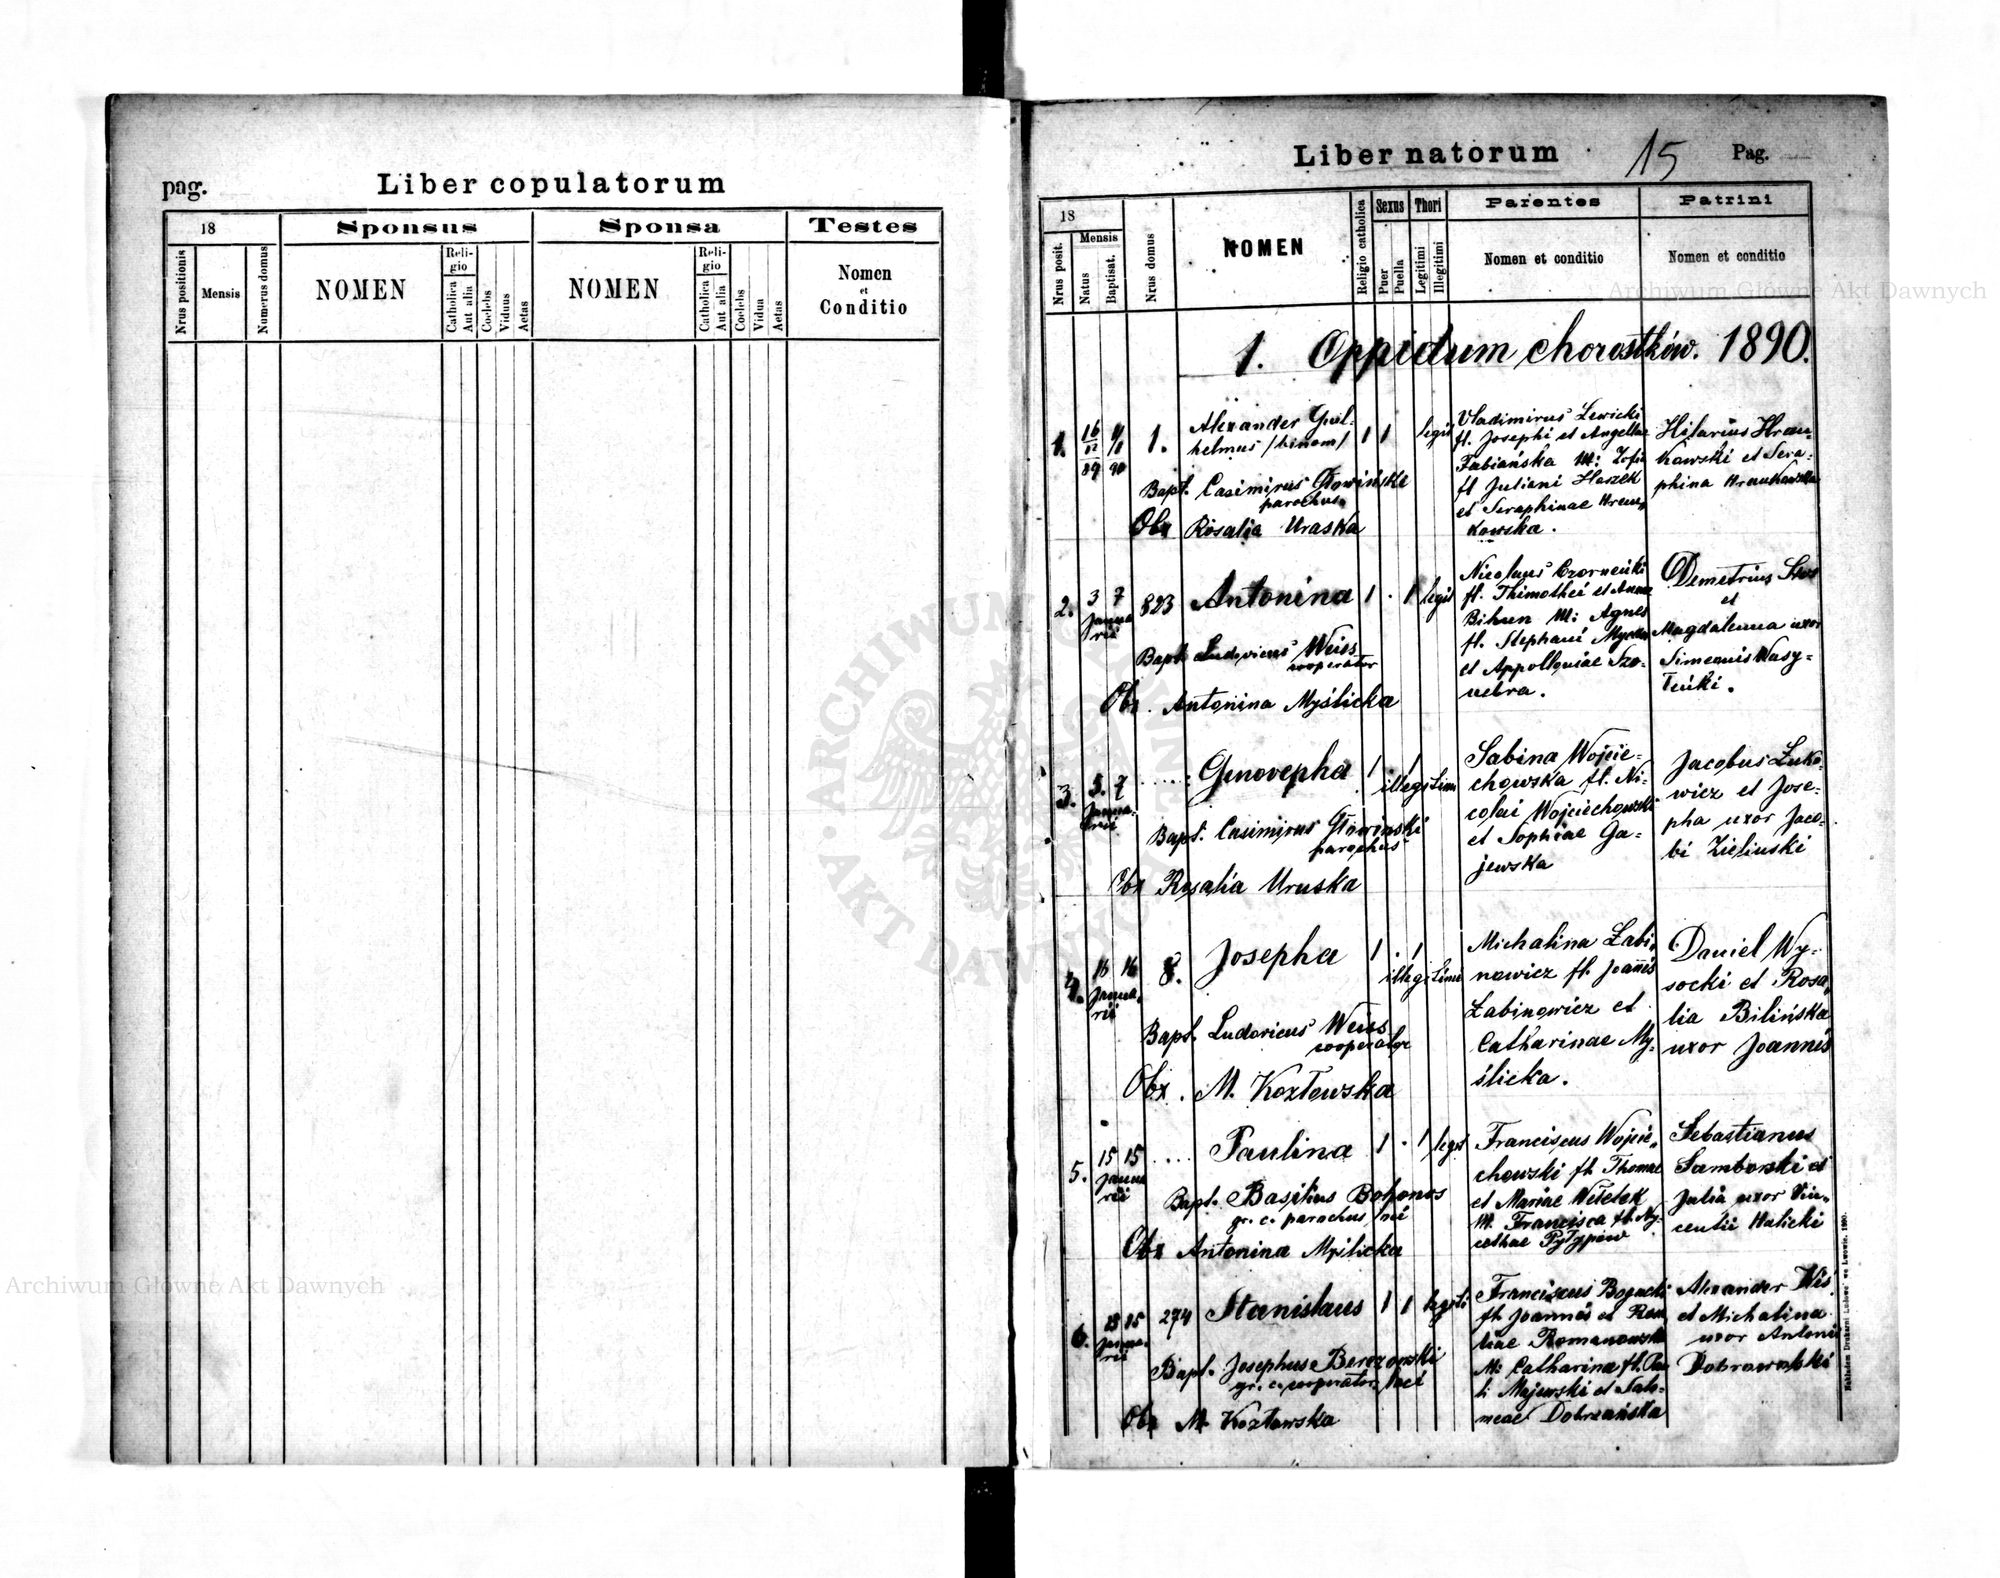 pag.
Liber copulatorum
18
Sponsus
Sponsa
Testes
Nrus positionis
Mensis
Numerus domus
NOMEN
Religio
Catholica
Aut alia
Coelebs
Viduus
Aetas
NOMEN
Religio
Catholica
Aut alia
Coelebs
Vidua
Aetas
Nomen
et
Conditio
Liber natorum
15
Pag.
18
Nrus posit.
Mensis
Natus
Baptisat.
Nrus domus
NOMEN
Religio catholica
Sexus
Puer
Puella
Thori
Legitimi
Illegitimi
Parentes
Nomen et conditio
Patrini
Nomen et conditio
1. Oppidum Chorostków. 1890.
1.
16
12
89
90
1.
Alexander Guil-
helmus /binom/
1 1
legit
Bapt. Casimirus Głowiński
parochus
Obs Rosalia Uruska
Vladimirus Lewicki
fl. Josephi et Angellae
Fabiańska M: Zofia
fl Juliani Haszek
et Seraphinae
kowska.
Hilarius Hran-
kowski et Sera-
phina
2.
3 7
Janua
rii
823
Antonina
1 . 1 legit
Bapt. Ludovicus Weiss
cooperator
Obs. Antonina Myślicka
Nicolaus Czorneńki
fl. Thimothei et Annae
Bihun M: Agnes
fl. Stephani
et Appolloniae Szo-
uebra.
Demetrius
et
Magdalenna uxor
Simeonis Wasy-
leńki.
3.
5. 7
Janua-
rii
Genovepha
1 1
illegitimi
Bapt. Casimirus Głowiński
parochus
Obs Rosalia Uruska
Sabina Wojcie-
chowska fl. Ni-
colai Wojciechowski
et Sophiae Ga-
jewska
Jacobus Łuko-
wicz et Jose-
pha uxor Jaco-
bi Zieliński
4.
16 16
Janua-
rii
8.
Josepha
1 . 1
illegitimi
Bapt. Ludovicus Weiss
cooperator
Obs. M. Kozłowska
Michalina Łabi-
nowicz fl. Joannis
Łabinowicz et
Catharinae My-
ślicka.
Daniel Wy-
socki et Rosa-
lia Bilińska
uxor Joannis
5.
15 15
Janua
rii
Paulina
1 . 1 legit
Bapt. Basilius
gr. c. parochus loci
Obs Antonina Myślicka
Franciscus Wojcie-
chowski fl. Thomae
et Mariae
M. Francisca fl. Ny-
cethae Pyłypiów
Sebastianus
Samborski et
Julia uxor Vin-
centii Halicki
6.
13 15
Janua-
rii
274
Stanislaus
1 1 legiti
Bapt. Josephus Berezowski
gr. c. cooperator loci
Obs M. Kozłowska
Franciscus Bogucki
fl. Joannes et Rosa
liae Romanowska
M: Catharina fl. Pau
li Majewski et Salo-
meae Dobrzańska
Alexander Wiś
et Michalina
uxor Antoni
Dobrowolski
Nakładem Drukarni Ludowej we Lwowie. 1890.
Archiwum Główne Akt Dawnych
Archiwum Główne Akt Dawnych
ARCHIWUM GŁÓWNE AKT DAWNYCH